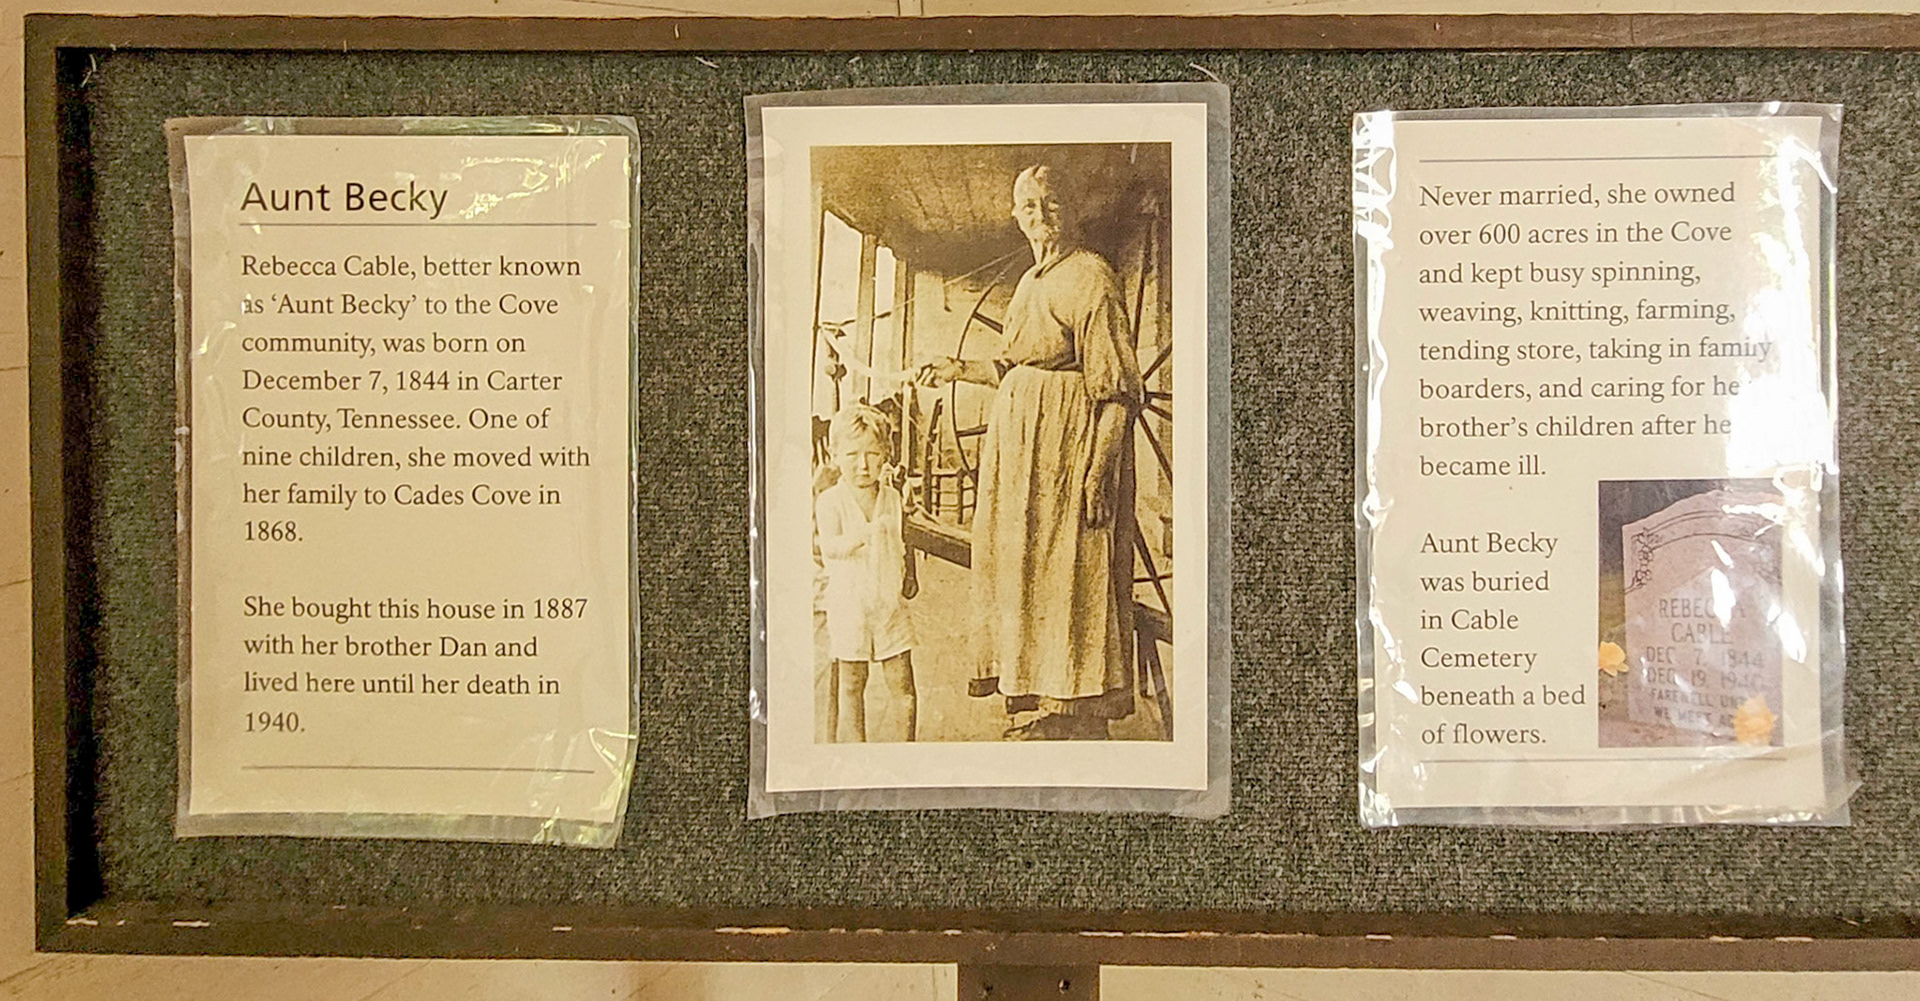 Aunt Becky
Rebecca Cable, better known
as ‘Aunt Becky’ to the Cove
community, was born on
December 7, 1844 in Carter
County, Tennessee. One of
nine children, she moved with
her family to Cades Cove in
1868.
She bought this house in 1887
with her brother Dan and
lived here until her death in
1940.
Never married, she owned
over 600 acres in the Cove
and kept busy spinning,
weaving, knitting, farming,
tending store, taking in family
boarders, and caring for
brother’s children after he
became ill.
Aunt Becky
was buried
in Cable
Cemetery
beneath a bed
of flowers.
REBECCA
CABLE
DEC 7, 1844
DEC 19, 1940
FAREWELL
WE MEET